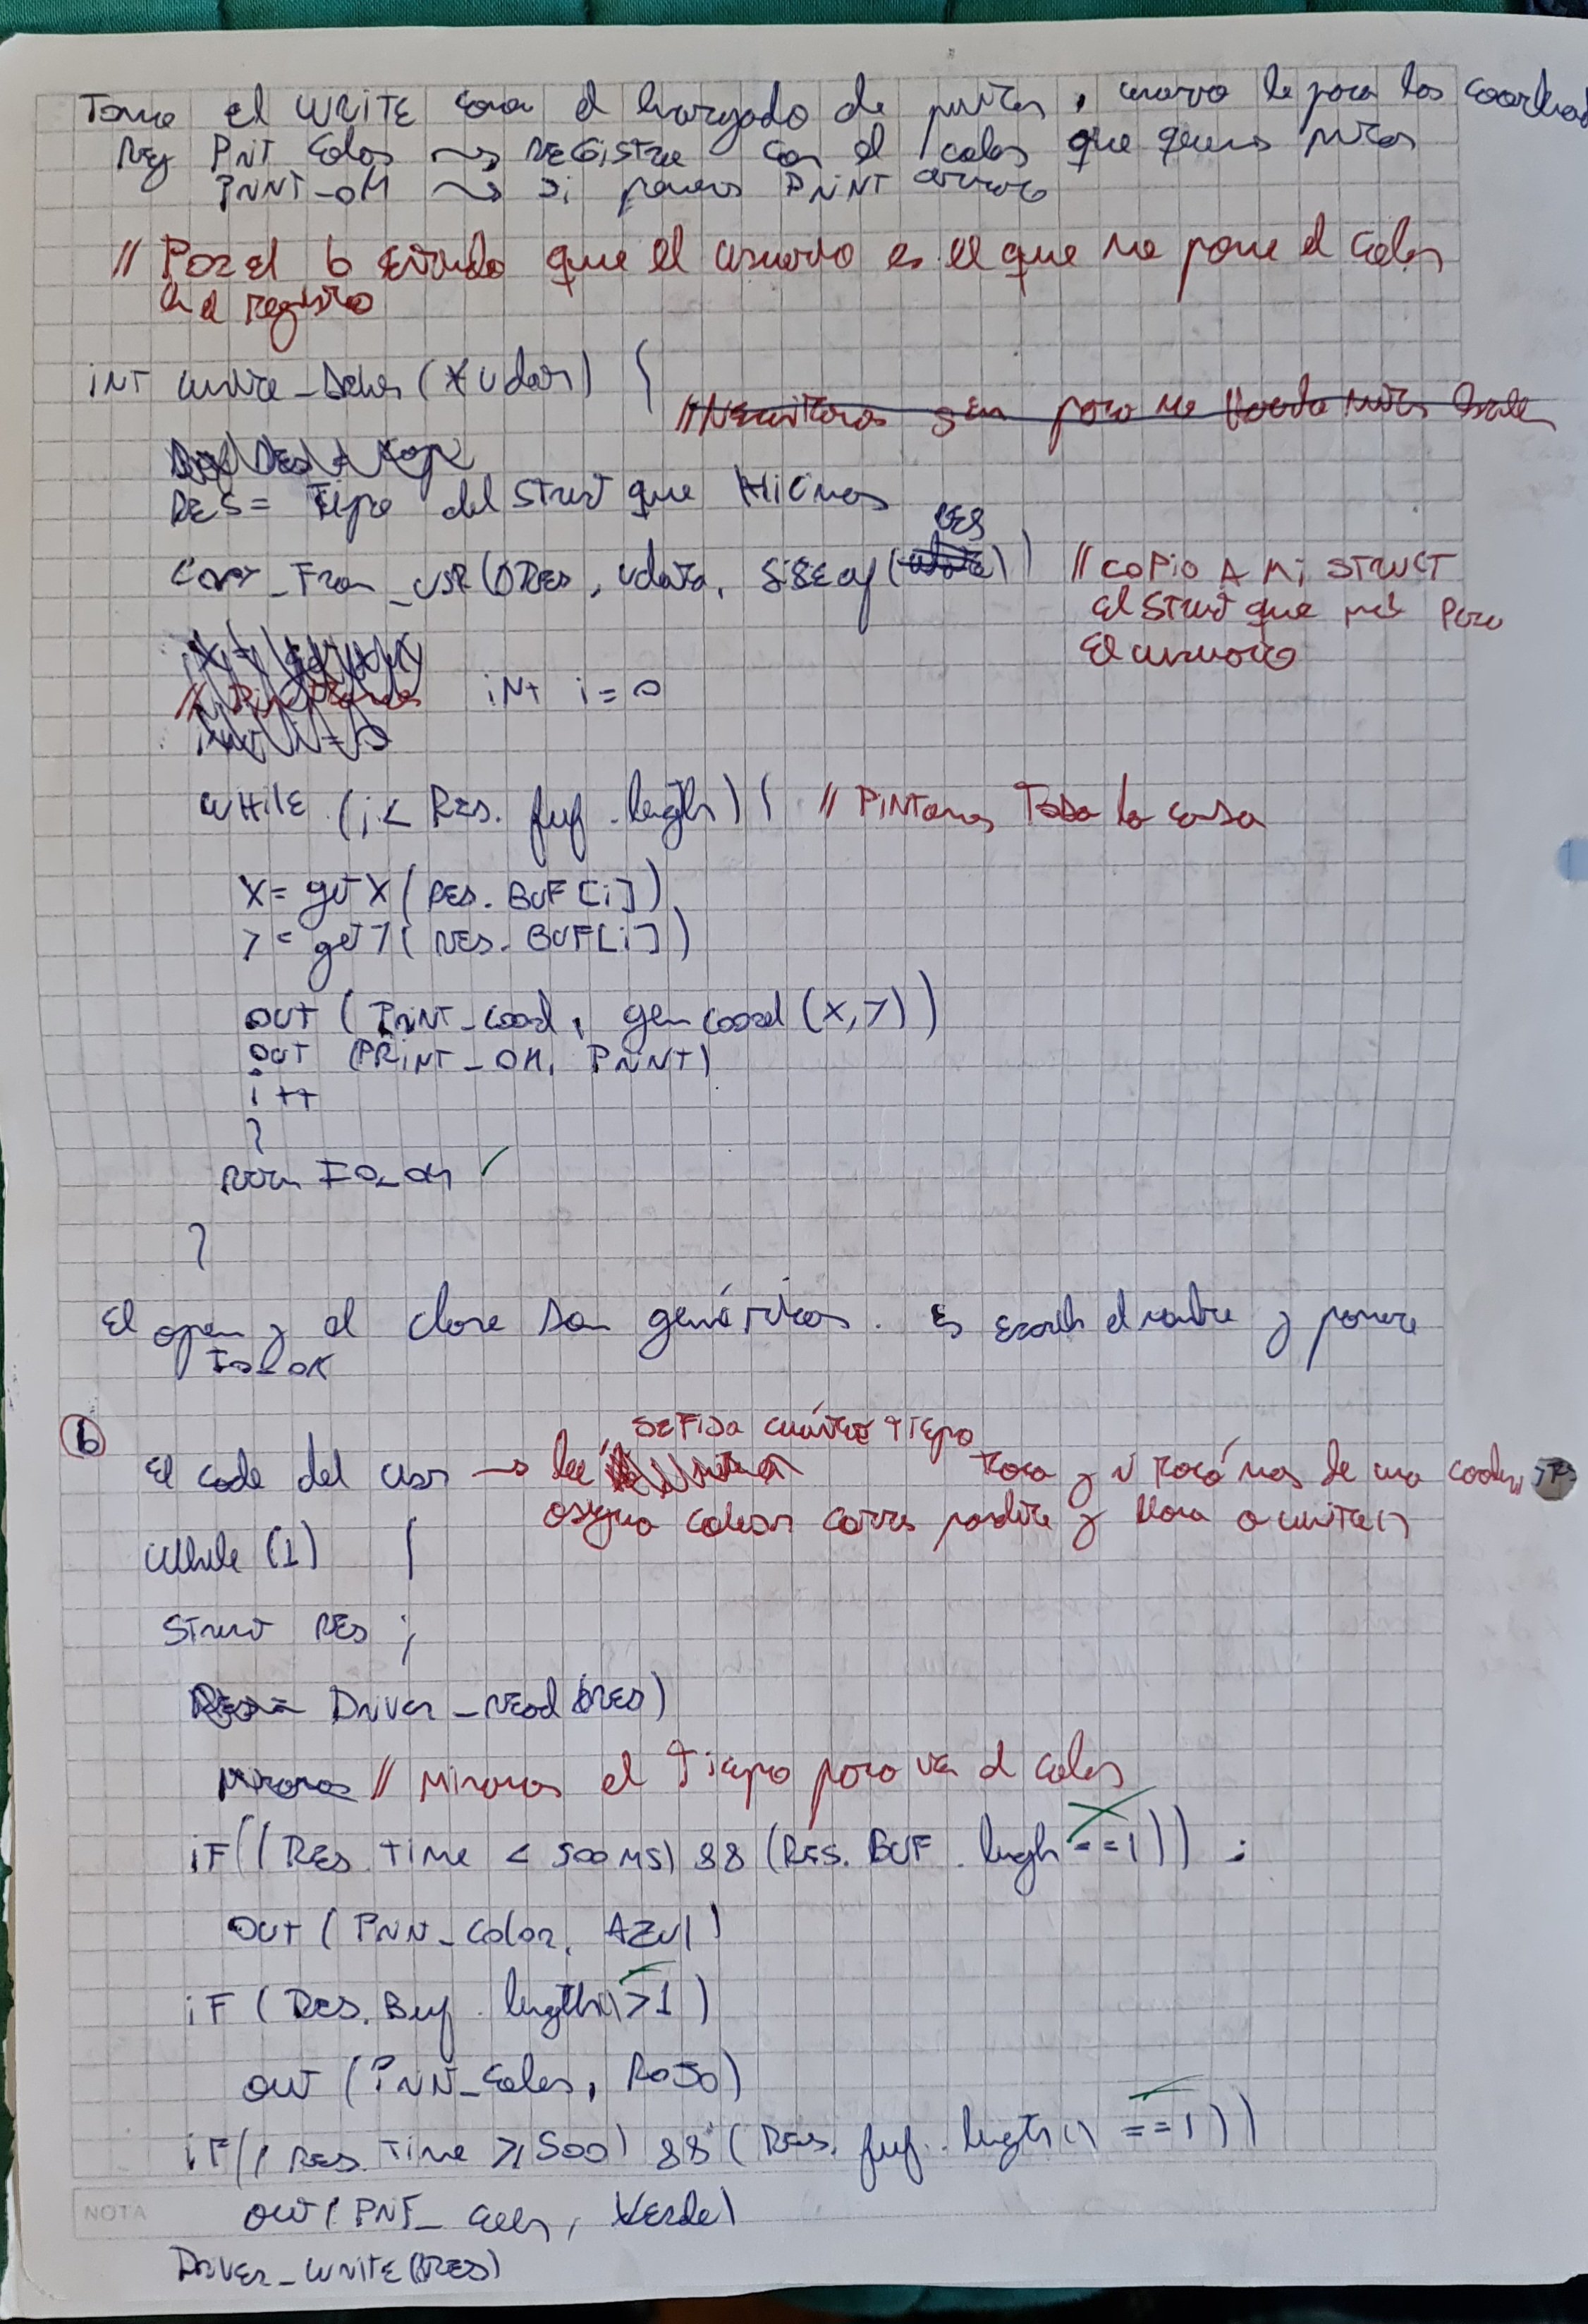 Tomo el WRITE como el encargado de pintar, usuario le pasa las coord
Reg PNT Color → REGISTRO con el color que quiero pintar
PRINT_OK → si ponemos PRINT
// Por el b entiendo que el usuario es el que me pone el color
en el registro
INT write_Driver(*udata) {
RES = Tipo del Struct que Hicimos
Copy_From_USR(&RES, udata, sizeof(RES)) // COPIO A Mi STRUCT
el Struct que me Paso
El usuario
int i = 0
WHILE (i < RES. buf .length) { // PINTamos Toda la cosa
X = getX(RES. BUF[i])
Y = getY(RES. BUF[i])
OUT (PRINT_coord, gen coord (X,Y))
OUT (PRINT_OK, PRINT)
i ++
}
return IO_OK
}
El open y el close son genéricos. Es escribir el nombre y ponerle
IO_OK
b El code del user → lee se fija cuánto tiempo toca y si tocó más de una coord
asigna color correspondiente y llama a write()
While (1) {
Struct RES ;
Driver_read(&RES)
// Miramos el Tiempo para ver el color
iF((RES. Time < 500MS) && (RES. BUF . length ==1)) ;
OUT (PRIN_Color, AZUl)
iF (RES. Buf . length() >1)
OUT (PRIN_Color, ROJO)
iF((RES. Time >= 500) && (RES. buf . length() ==1))
OUT(PNT_ color, Verde)
DRIVER_WRITE(&RES)
NOTA